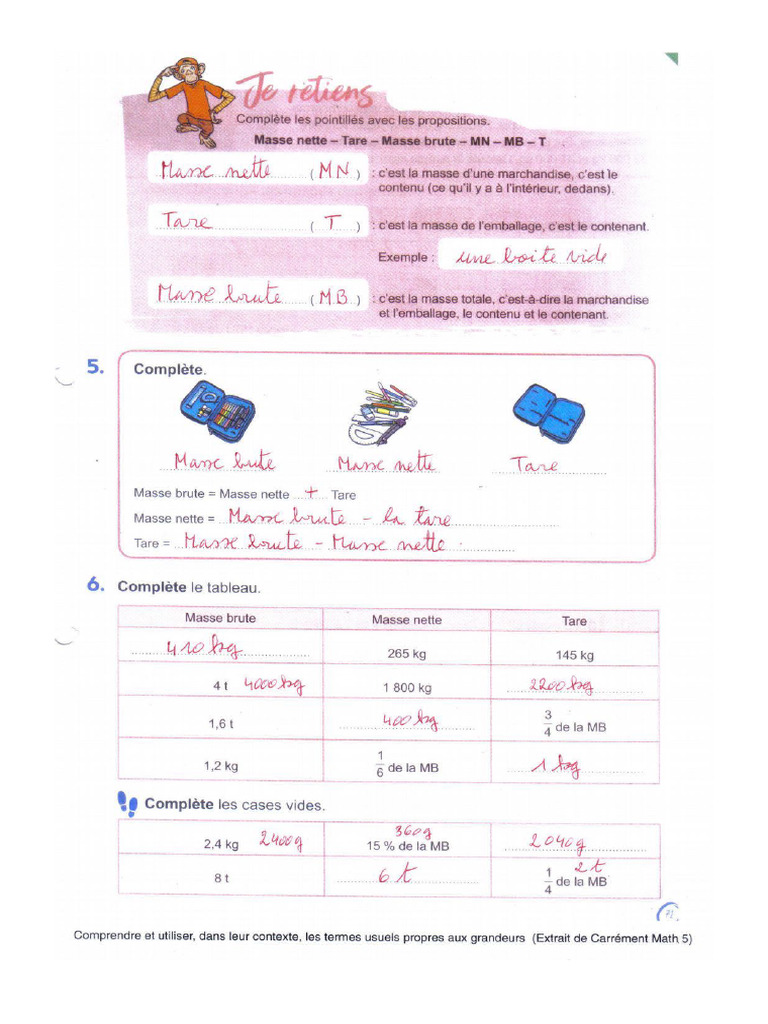 Je retiens
Complète les pointillés avec les propositions.
Masse nette – Tare – Masse brute – MN – MB – T
Masse nette ( MN ) : c'est la masse d'une marchandise, c'est le
contenu (ce qu'il y a à l'intérieur, dedans).
Tare ( T ) : c'est la masse de l'emballage, c'est le contenant.
Exemple : une boite vide
Masse brute ( MB ) : c'est la masse totale, c'est-à-dire la marchandise
et l'emballage, le contenu et le contenant.
5. Complète.
Masse brute Masse nette Tare
Masse brute = Masse nette + Tare
Masse nette = Masse brute - la tare
Tare = Masse brute - Masse nette
6. Complète le tableau.
Masse brute Masse nette Tare
410 kg 265 kg 145 kg
4 t 4000 kg 1 800 kg 2200 kg
1,6 t 400 kg 3/4 de la MB
1,2 kg 1/6 de la MB 1 kg
Complète les cases vides.
2,4 kg 2400g 15 % de la MB 360g 2040g
8 t 6 t 1/4 de la MB 2 t
Comprendre et utiliser, dans leur contexte, les termes usuels propres aux grandeurs (Extrait de Carrément Math 5)